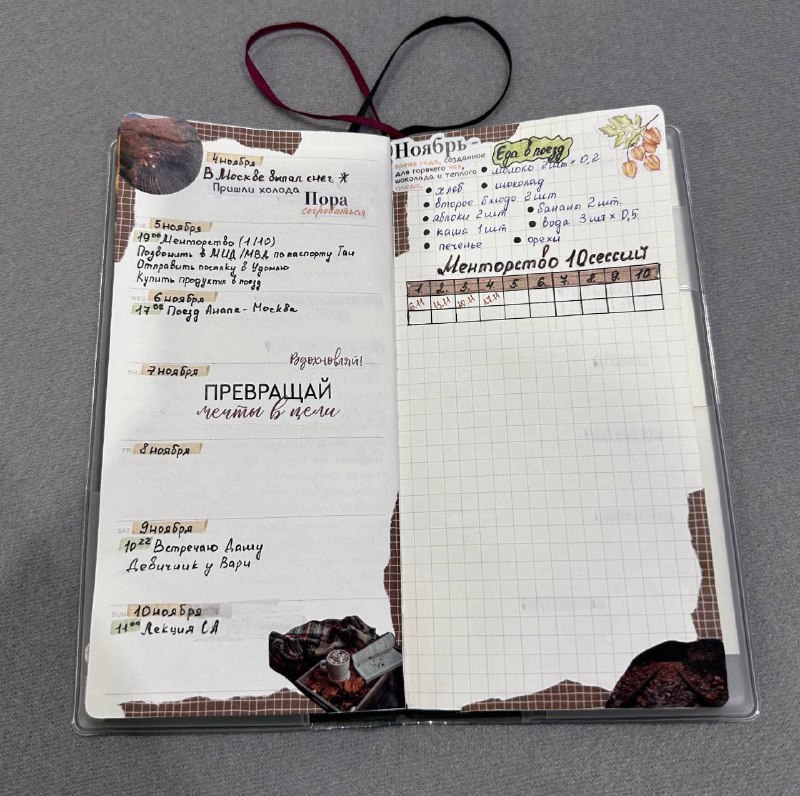 4 ноября
В Москве выпал снег
Пришли холода
Пора
согреваться
5 ноября
19⁰⁰ Менторство (1/10)
Позвонить в МИД/МВД по паспорту Таи
Отправить посылку в Удомлю
Купить продукты в поезд
WED
6 ноября
17⁰² Поезд Анапа-Москва
Вдохновляй!
THU
7 ноября
ПРЕВРАЩАЙ
мечты в цели
FRI
8 ноября
SAT
9 ноября
10²² Встречаю Дашу
Девичник у Вари
SUN
10 ноября
11⁰⁰ Лекция СА
Ноябрь -
время года, созданное
для горячего чая,
шоколада и теплого
пледа.
Еда в поезд
молоко 2 шт × 0,2
хлеб
шоколад
второе блюдо 2 шт
яблоки 2 шт
банана 2 шт.
каша 1 шт
вода 3 шт × 0,5
печенье
орехи
Менторство 10 сессий
1. 2. 3. 4. 5 6. 7. 8. 9. 10.
6.11 13.11 20.11 27.11